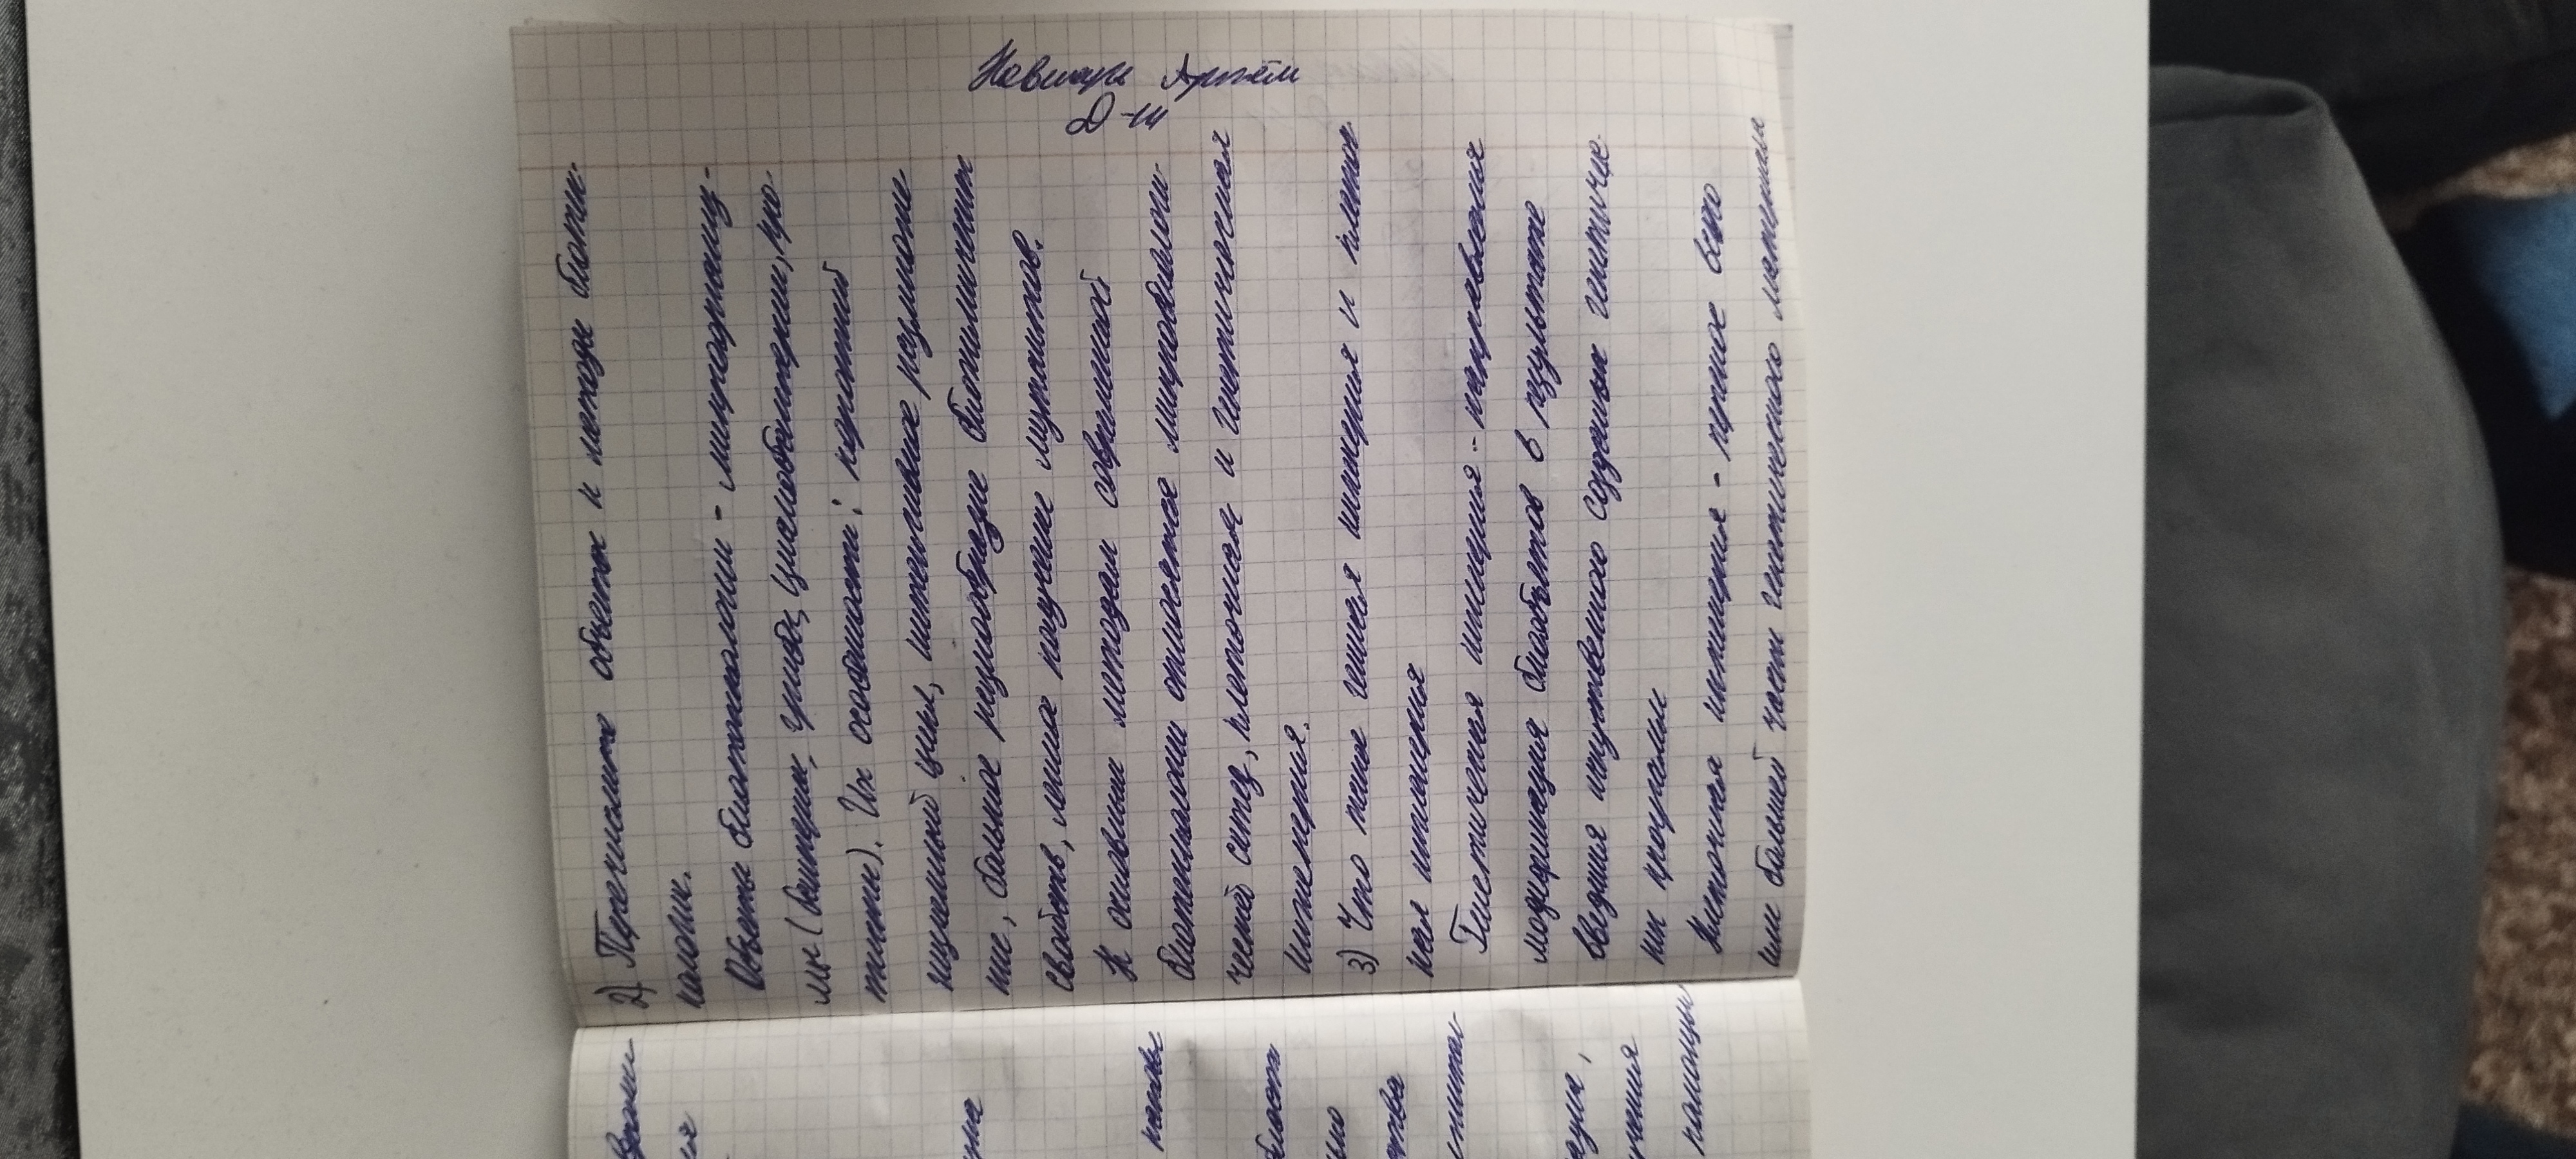 Артём
Д-111
2) Перечислите объекты и методы биотех-
нологии.
Объекты биотехнологии - микроорганиз-
мы (бактерии, грибы, цианобактерии, про-
тисты). Их особенности: короткий
жизненный цикл, интенсивное размноже
ние, большое разнообразие биохимических
свойств, легкое получение мутантов.
К основным методам современной
биотехнологии относятся микробиологи-
ческий синтез, клеточная и генетическая
инженерия.
3) Что такое генная инженерия и клеточ
ная инженерия
Генетическая инженерия - направленная
модификация биообъектов в результате
введения искусственно созданных генетичес
ких программ
Клеточная инженерия - перенос
или большей части генетического материала